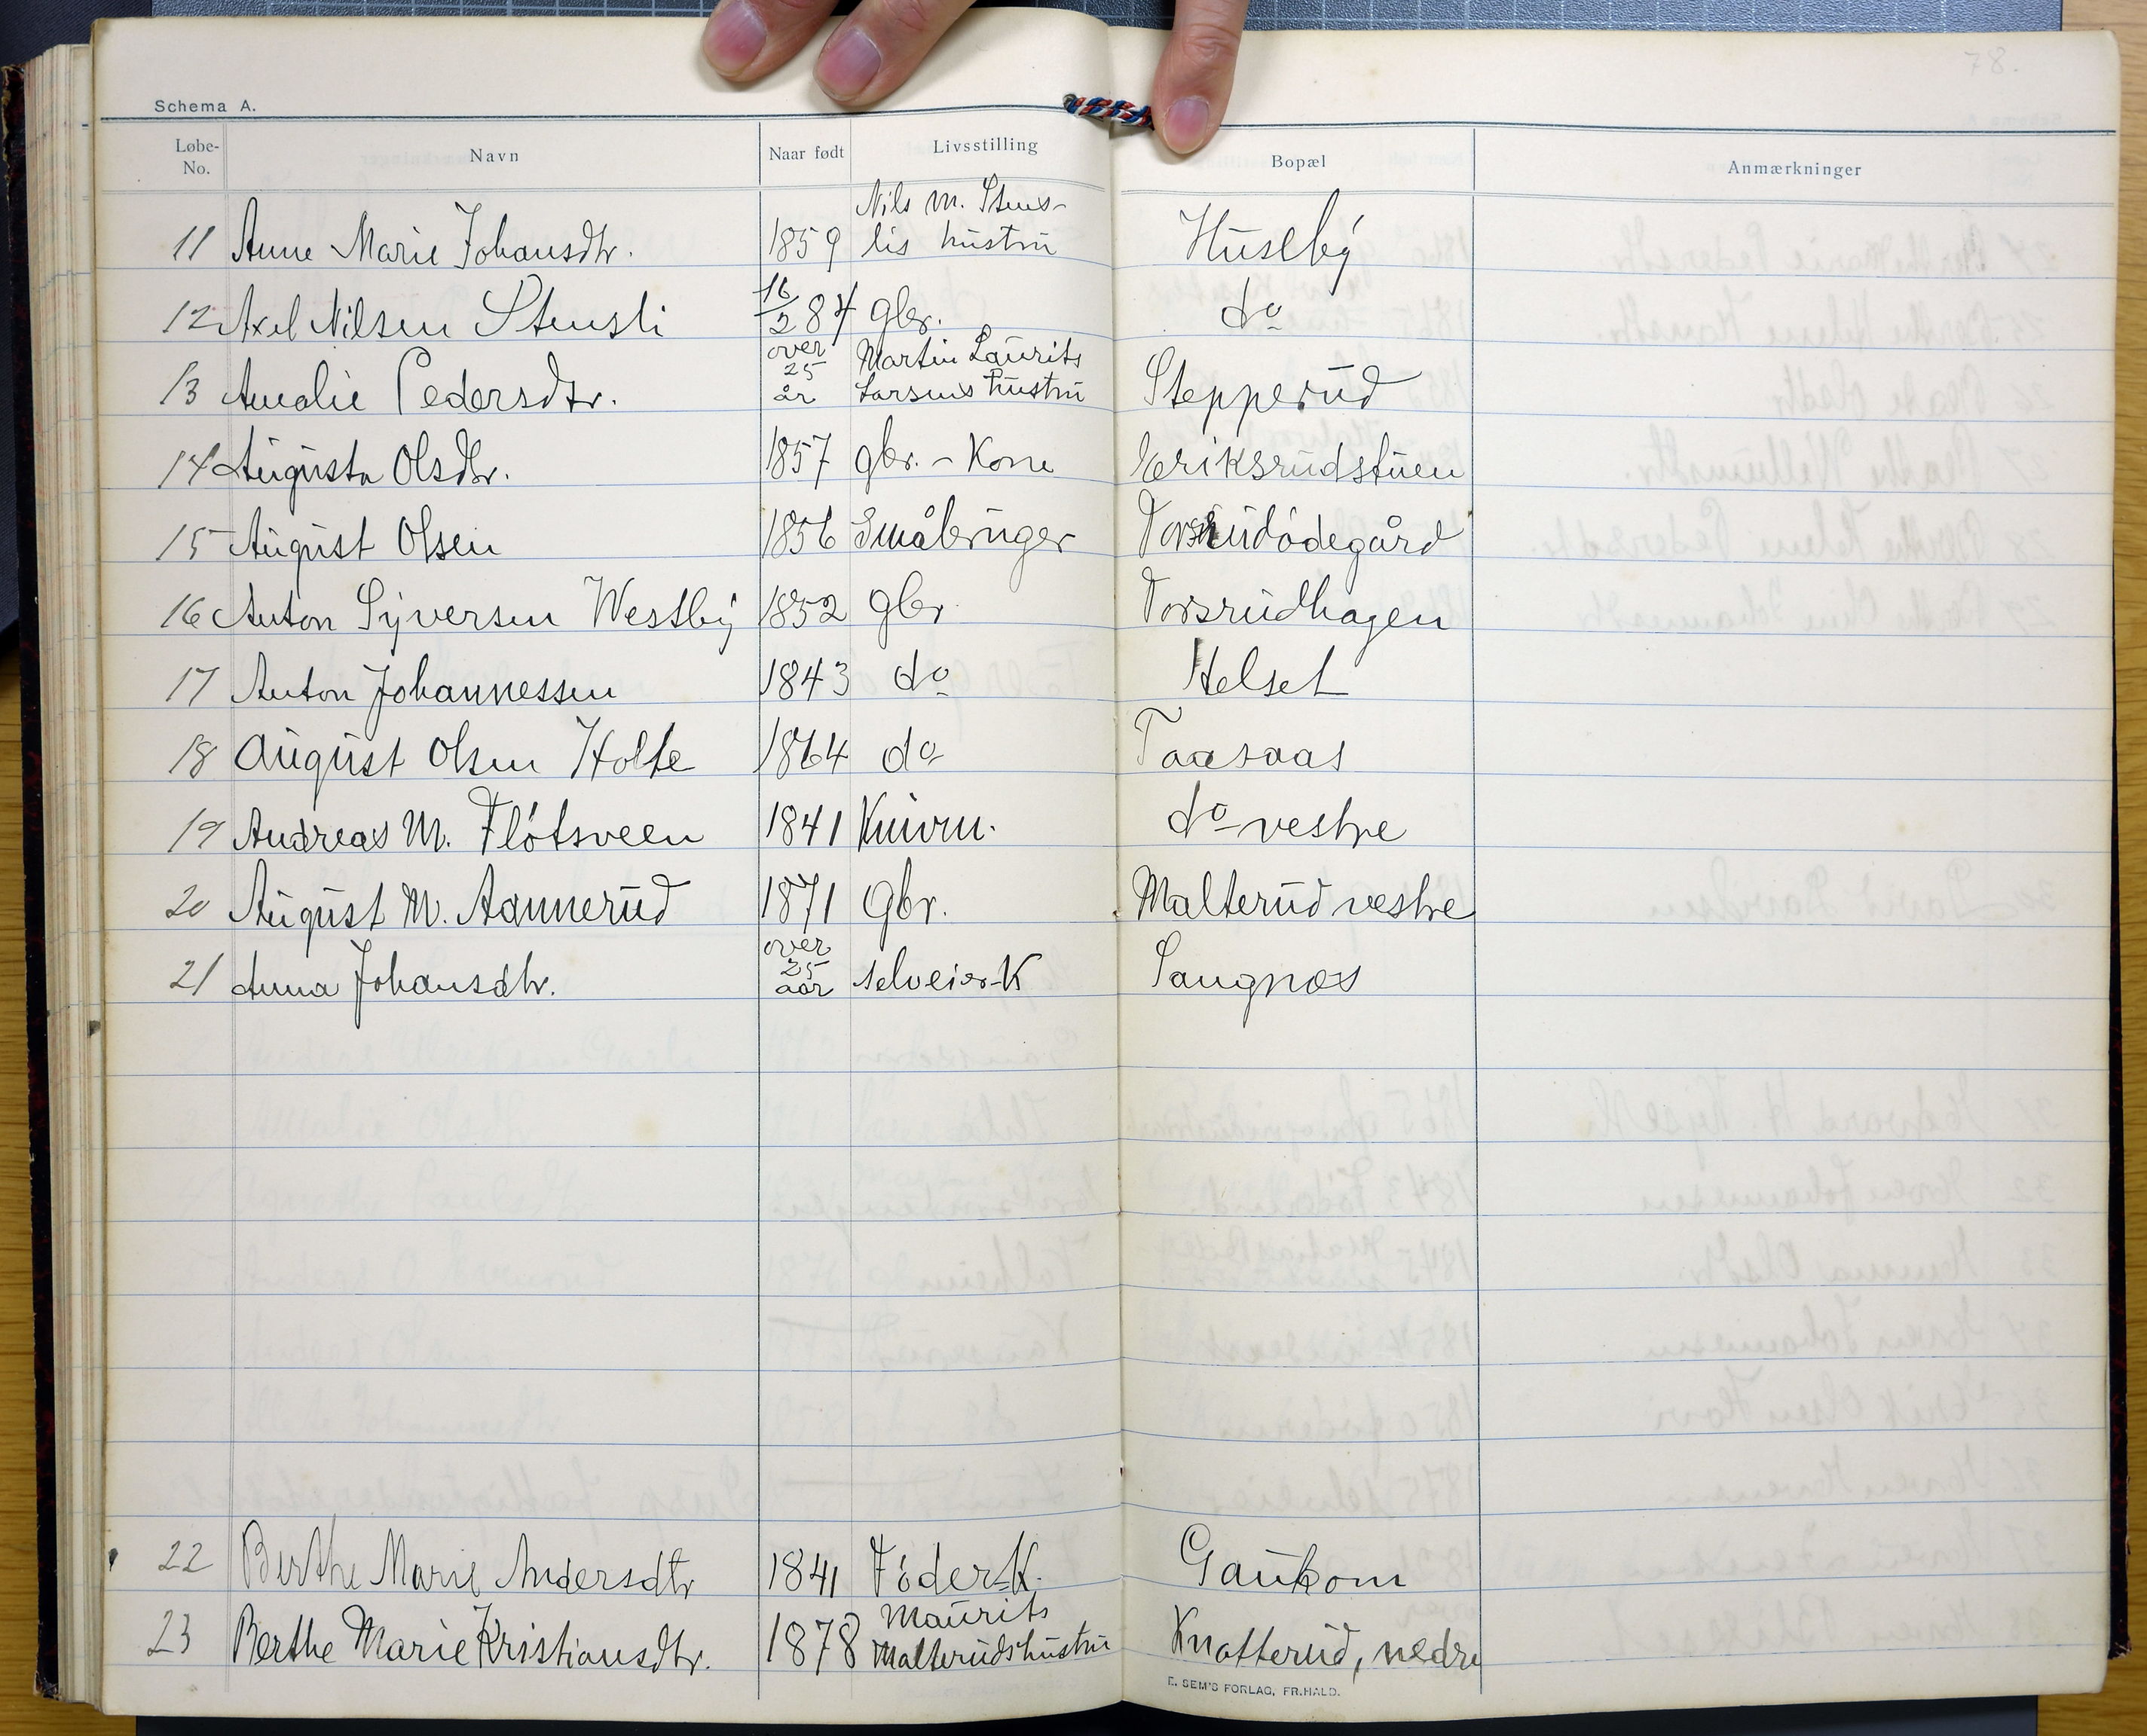 78.
Schema A.
Løbe-No. Navn Naar født Livsstilling Bopæl Anmærkninger
11 Anne Marie Johansdtr. 1859 Nils M. Stens-lis hustru Huseby
12 Axel Nilsen Stensli 16/2 84 gbr. do
13 Amalie Pedersdtr. over 25 år Martin Laurits Larsens hustru Stepperud
14 Augusta Olsdtr. 1857 gbr. - Kone Eriksrudstuen
15 August Olsen 1856 Småbruger Torsrudödegård
16 Anton Syversen Westby 1852 gbr. Torsrudhagen
17 Anton Johannessen 1843 do Helset
18 August Olsen Holte 1864 do Taasaas
19 Andreas M. Flótsveen 1841 do vestre
20 August M. Aannerud 1871 Gbr. Malterud vestre
21 Anna Johansdtr. over 25 aar selveier-K Saugnæs
22 Berthe Marie Andersdtr 1841 Föder-K. Gaukom
23 Berthe Marie Kristiansdtr. 1878 Maurits Malteruds hustru Knatterud, nedre
E. SEM'S FORLAG, FR.HALD.